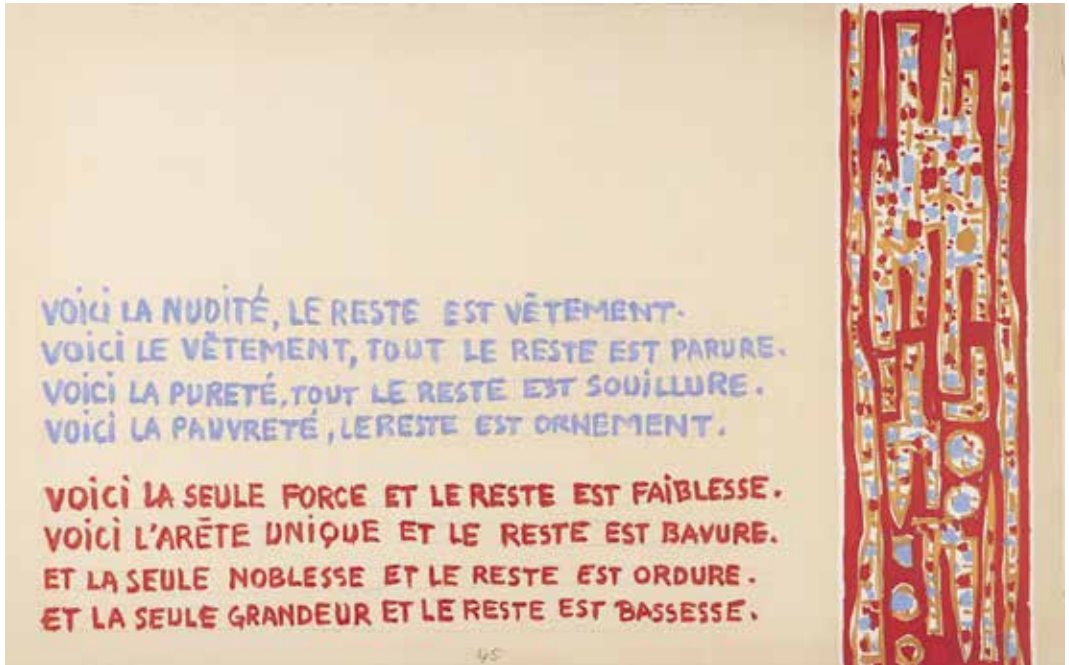 VOICI LA NUDITÉ, LE RESTE EST VÊTEMENT.
VOICI LE VÊTEMENT, TOUT LE RESTE EST PARURE.
VOICI LA PURETÉ, TOUT LE RESTE EST SOUILLURE.
VOICI LA PAUVRETÉ, LE RESTE EST ORNEMENT.
VOICI LA SEULE FORCE ET LE RESTE EST FAIBLESSE.
VOICI L'ARÊTE UNIQUE ET LE RESTE EST BAVURE.
ET LA SEULE NOBLESSE ET LE RESTE EST ORDURE.
ET LA SEULE GRANDEUR ET LE RESTE EST BASSESSE.
45